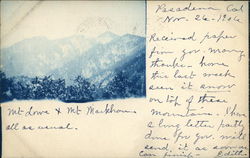 Pasadena Cal
Nov. 26 - 1906
Received paper
from you. Many
thanks. have
this last week
seen it snow
on top of these
mountains. I have
a long letter part
done for you. will
send it as soon as
Can finish - Edith
Mt Lowe & Mt Markham
all as usual.